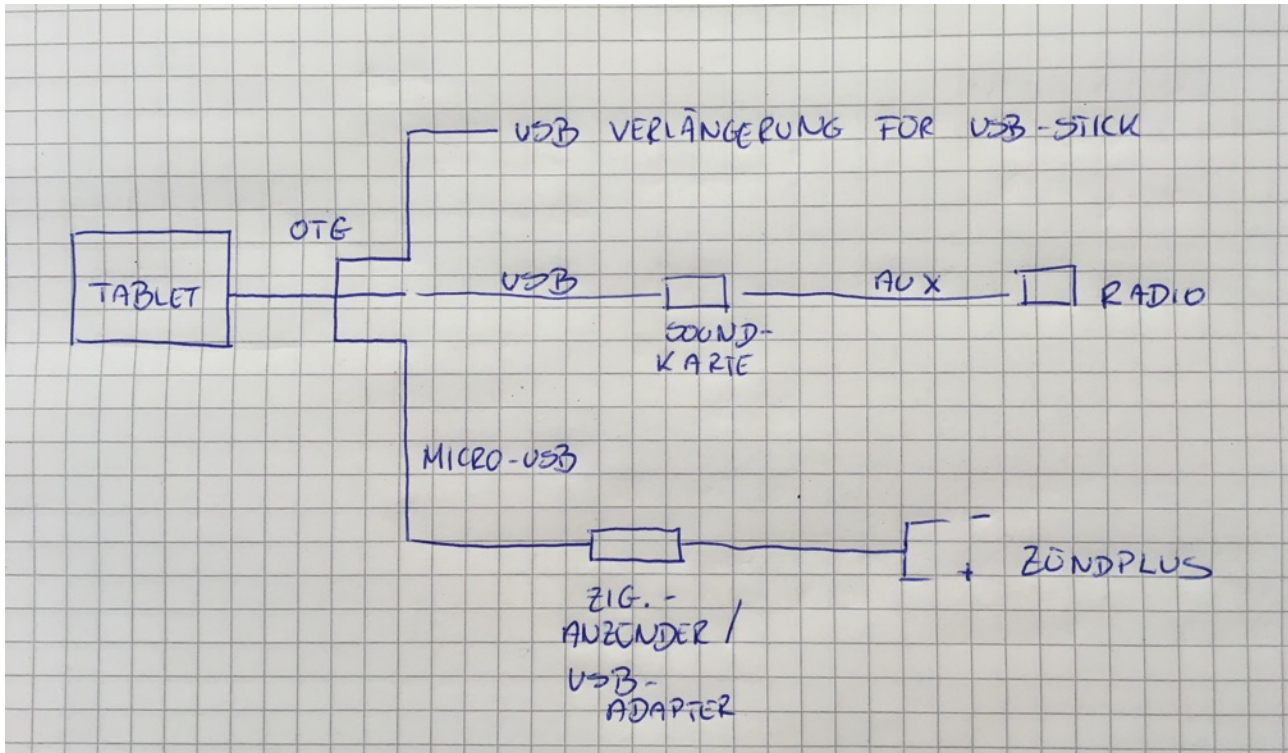 USB VERLÄNGERUNG FÜR USB-STICK
OTG
TABLET
USB
SOUND-
KARTE
AUX
RADIO
MICRO-USB
ZIG.-
ANZÜNDER /
USB-
ADAPTER
-
+
ZÜNDPLUS